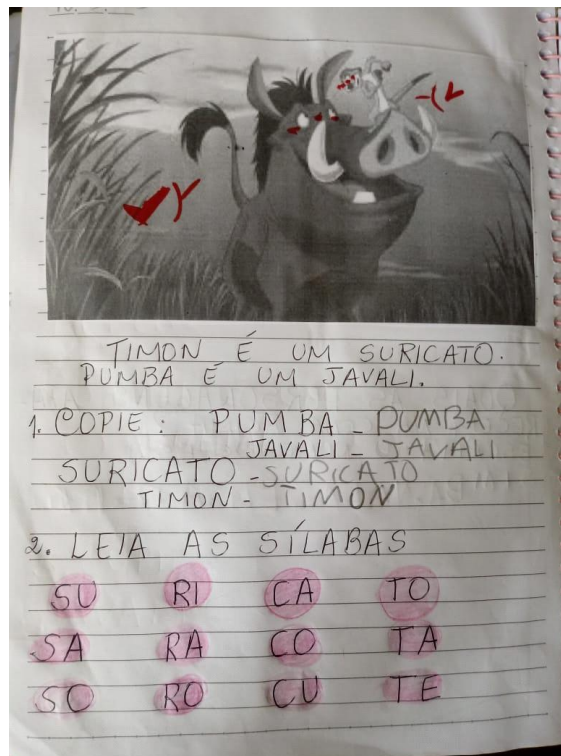 TIMON É UM SURICATO.
PUMBA É UM JAVALI.
1. COPIE: PUMBA - PUMBA
JAVALI - JAVALI
SURICATO - SURICATO
TIMON - TIMON
2. LEIA AS SÍLABAS
SU RI CA TO
SA RA CO TA
SO RO CU TE